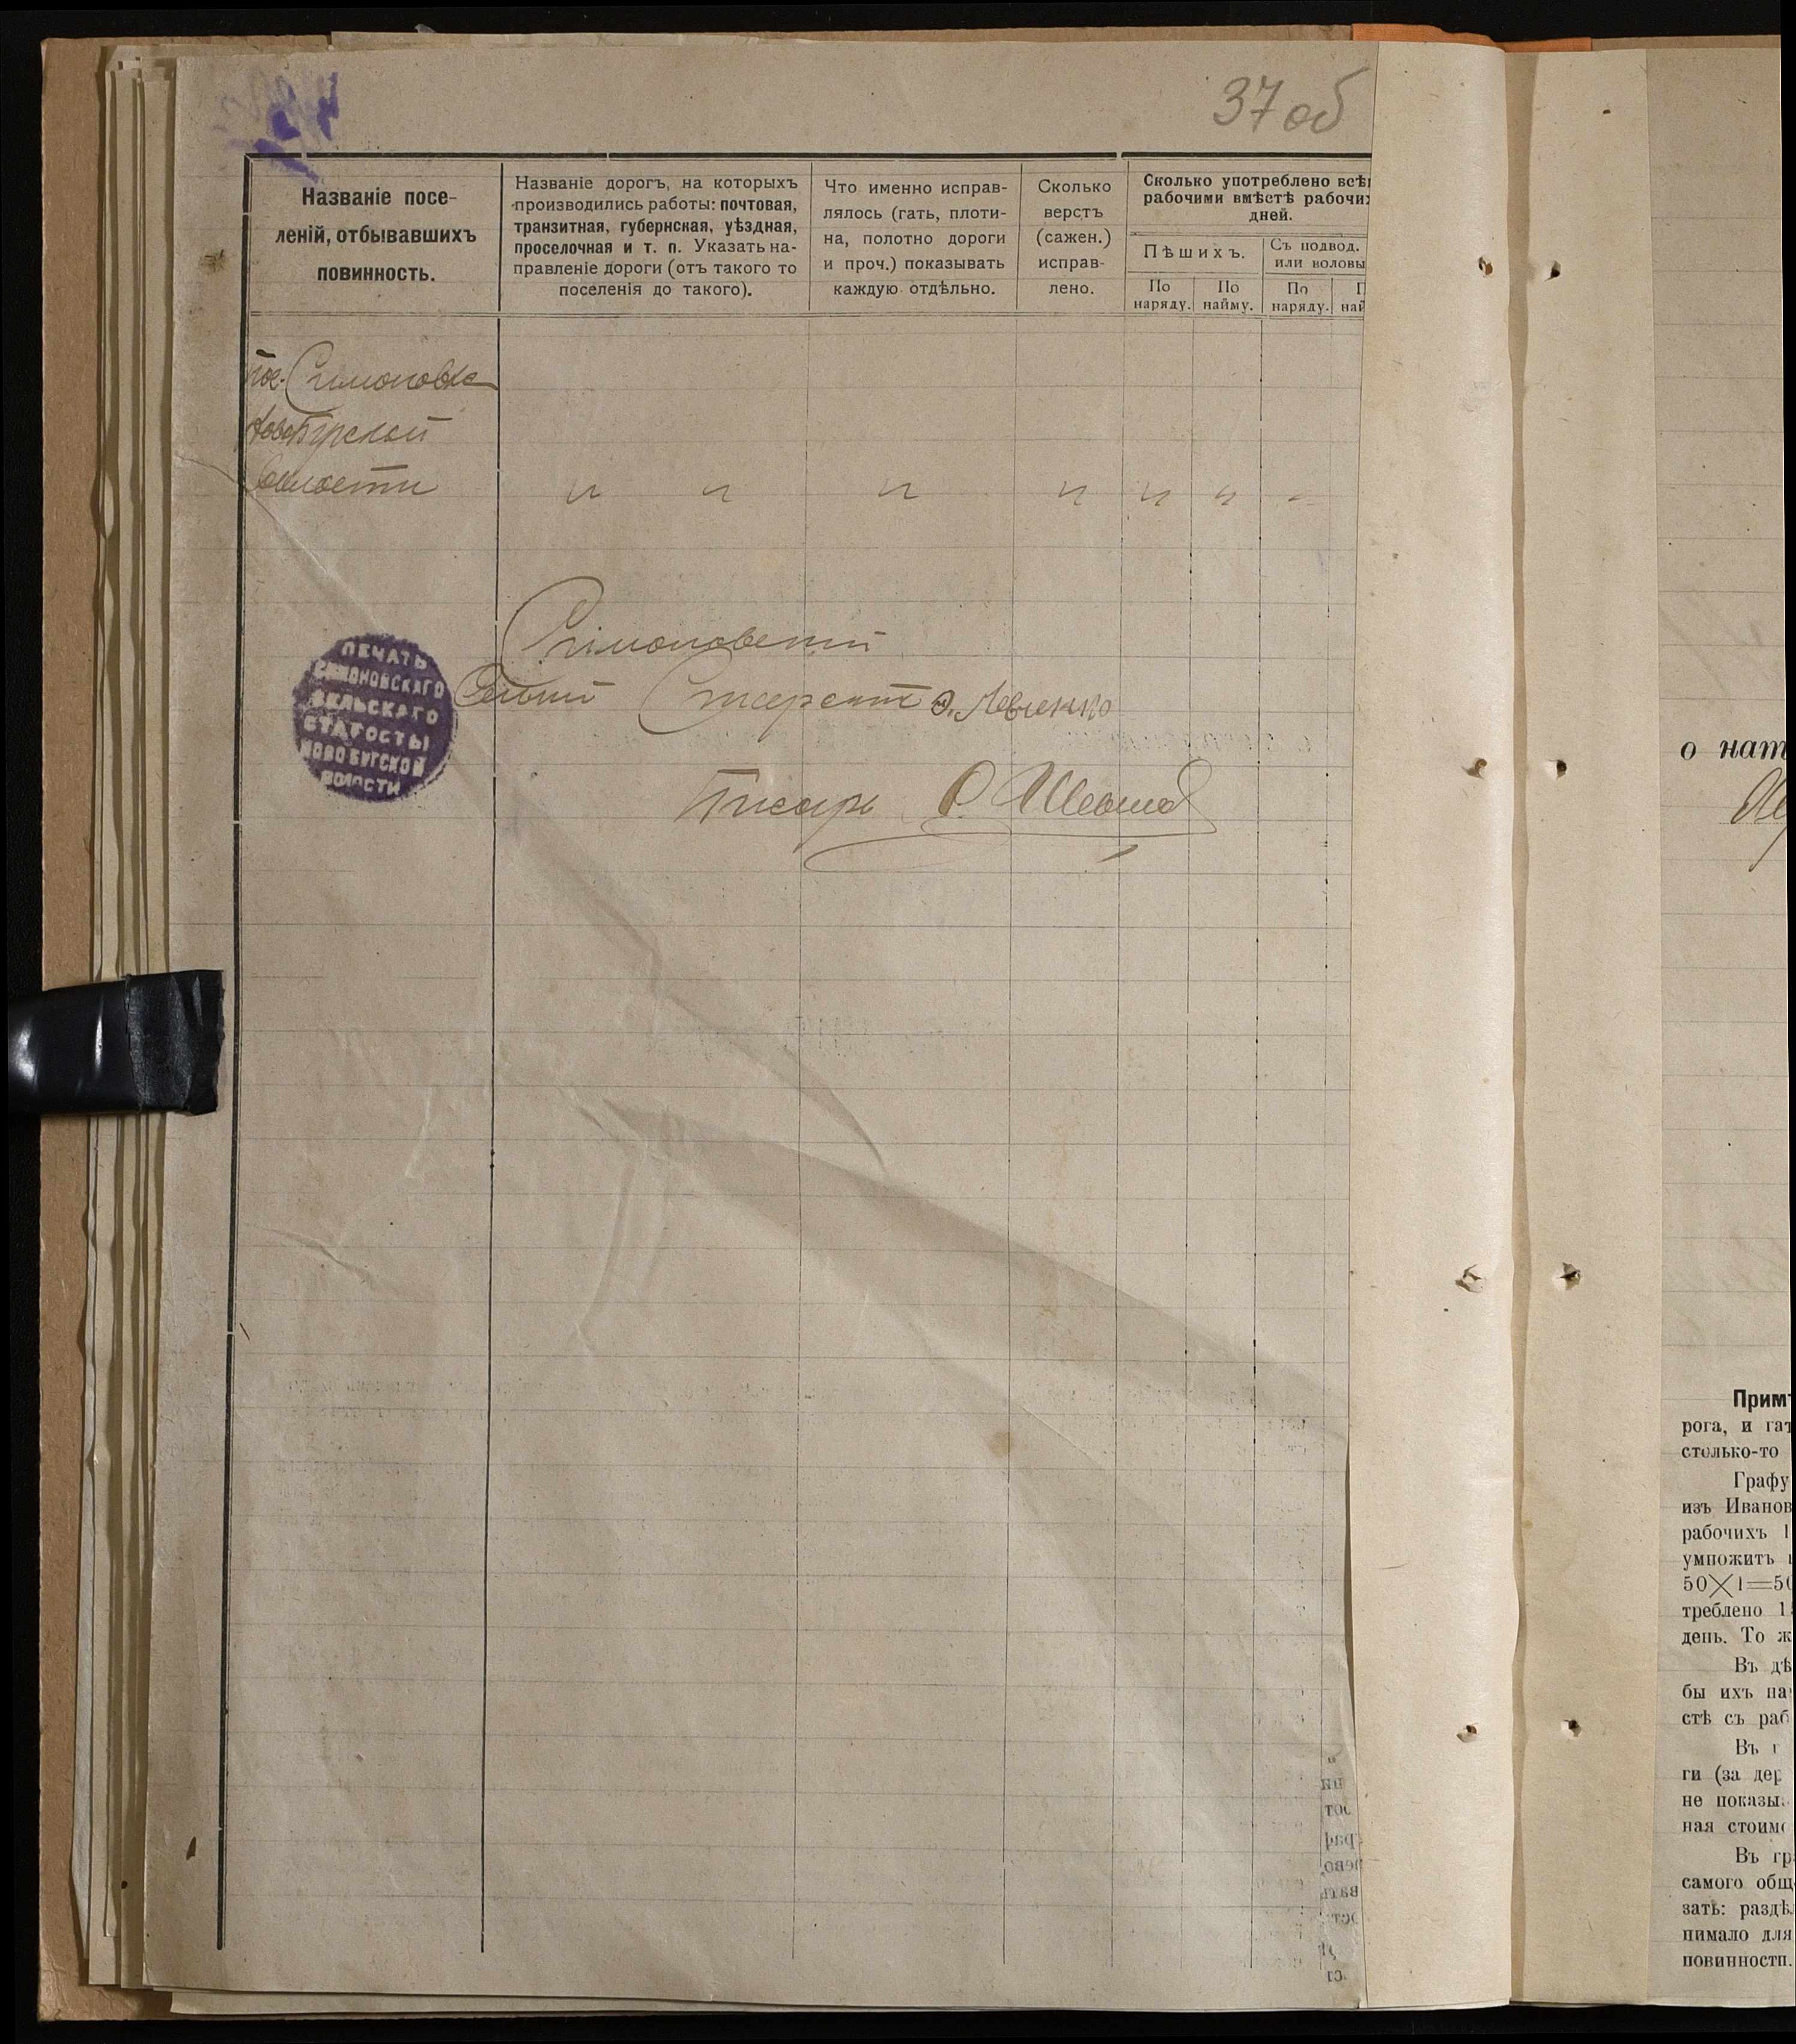 37 об
Названіе посе-
леній, отбывавшихъ
повинность.
Названіе дорогъ, на которыхъ
производились работы: почтовая,
транзитная, губернская, уѣздная,
проселочная и т. п. Указать на-
правленіе дороги (отъ такого то
поселенія до такого).
Что именно исправ-
лялось (гать, плоти-
на, полотно дороги
и проч.) показывать
каждую отдѣльно.
Сколько
верстъ
(сажен.)
исправ-
лено.
Сколько употреблено всѣ
рабочими вмѣстѣ рабочи
дней.
Пѣшихъ.
Съ подвод.
или воловы
По
наряду.
По
найму.
По
наряду.
П
най
пос. Симоновка
Новобугской
волости
" " " " " " "
Симоновский
Староста Левченко
Писарь
ПЕЧАТЬ
СИМОНОВСКАГО
СЕЛЬСКАГО
СТАРОСТЫ
НОВОБУГСКОЙ
ВОЛОСТИ
о нат
Прим
рога, и гат
столько-то
Графу
изъ Иванов
рабочихъ 1
умножить
50×1=50
треблено 1
день. То ж
Въ дѣ
бы ихъ на
стѣ съ раб
Въ г
ги (за дер
не показы
ная стоимо
Въ гр
самого общ
зать: раздѣ
нимало для
повинности.